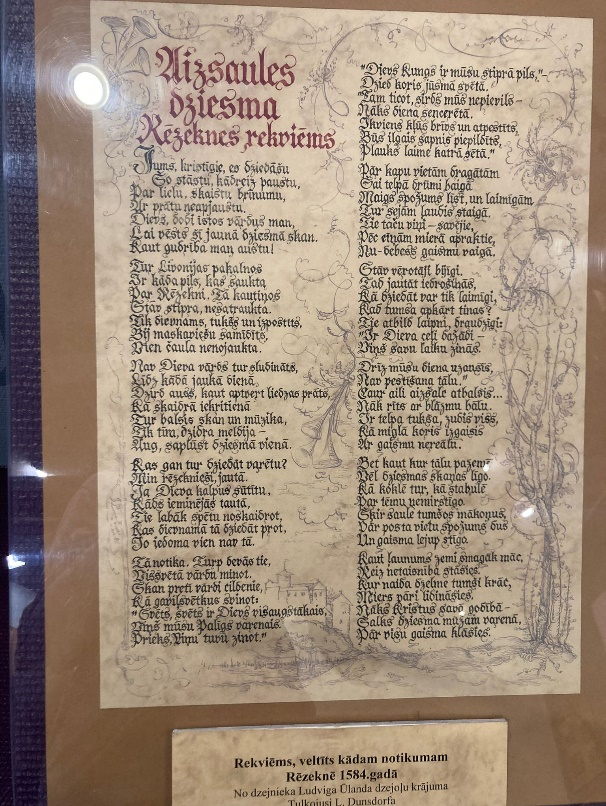 Aizsaules
dziesma
Rēzeknes rekviēms
Jums, kristīgie, es dziedāšu
So stāstu, kādreiz paustu,
Par lielu, skaistu brīnumu,
Ar prātu neapjaustu.
Dievs, dodi īstos vārdus man,
Lai vēsts šī jaunā dziesmā skan.
Kaut gudrība man austu!
Tur Livonijas pakalnos
Ir kāda pils, kas saukta
Par Rēzekni. Tā kautiņos
Stāv stipra, nesatraukta.
Tik dievnams, tukšs un izpostīts,
Bij maskaviešu samīdīts,
Vien čaula nenojaukta.
Nav Dieva vārds tur sludināts,
Līdz kādā jaukā dienā
Dzird auss, kaut aptvert liedzas prāts,
Kā skaidrā iekritienā
Tur balsis skan un mūzika,
Tik tīra, dzidra meldija
Aug, saplūst dziesmā vienā.
Kas gan tur dziedāt varētu?
Min rēzeknieši, jautā.
Ja Dieva kalpus sūtītu,
Kāds ieminējās tautā,
Tie labāk spētu noskaidrot,
Kas dievnamā tā dziedāt prot,
Jo iedoma vien nav tā.
Tā notika. Turp devās tie,
Vissvētā vārdu minot.
Skan pretī vārdi cildenie,
Kā gaviļsvētkus svinot:
"Svēts, svēts ir Dievs visaugstākais,
Viņš mūsu Palīgs varenais.
Prieks, Viņu tuvu zinot."
"Dievs Kungs ir mūsu stiprā pils,"–
Dzied koris jūsmā svētā.
"Tam ticot, sirds mūs nepievils –
Nāks diena sencerētā.
Ikviens kļūs brīvs un atpestīts,
Būs ilgais sapnis piepildīts,
Plauks laime katrā sētā."
Pār kapu vietām dragātām
Sai telpā brūmi baigā
Maigs spožums līst, un laimīgām
Tur sejām ļaudis staigā.
Tie taču viņi – savējie,
Pēc cīņām mierā apraktie,
Nu – debess gaismu vaigā.
Stāv vērotāji bijīgi.
Tad jautāt iedrošinās,
Kā dziedāt var tik laimīgi,
Kad tumsa apkārt tinas?
Tie atbild laipni, draudzīgi:
"Ir Dieva ceļi dažādi –
Viņš savu laiku zinās.
Drīz mūsu diena uzausīs,
Nav pestīšana tālu,"
Caur aili aizsalc atbalsis...
Nāk rīts ar blāzmu bālu.
Ir telpa tukša, zudis viss,
Kā miglā koris izgaisis
Ar gaismu nereālu.
Bet kaut kur tālu pazemē
Vēl dziesmas skaņas līgo.
Kā koklē tur, kā stabulē
Par tēmu nemirstīgo.
Šķir saule tumšos mākoņus,
Pār posta vietu spožums dus
Un gaisma lejup stīgo.
Kaut ļaunums zemi smagāk māc,
Reiz netaisnība stāsies.
Kur naida dzelme tumši krāc,
Miers pāri līdināsies.
Nāks Kristus savā godībā
Salks dziesma mūžam varenā,
Pār visu gaisma klāsies.
Rekviēms, veltīts kādam notikumam
Rēzeknē 1584.gadā
No dzejnieka Ludviga Ūlanda dzejoļu krājuma
Tulkojusi L. Dunsdorfa